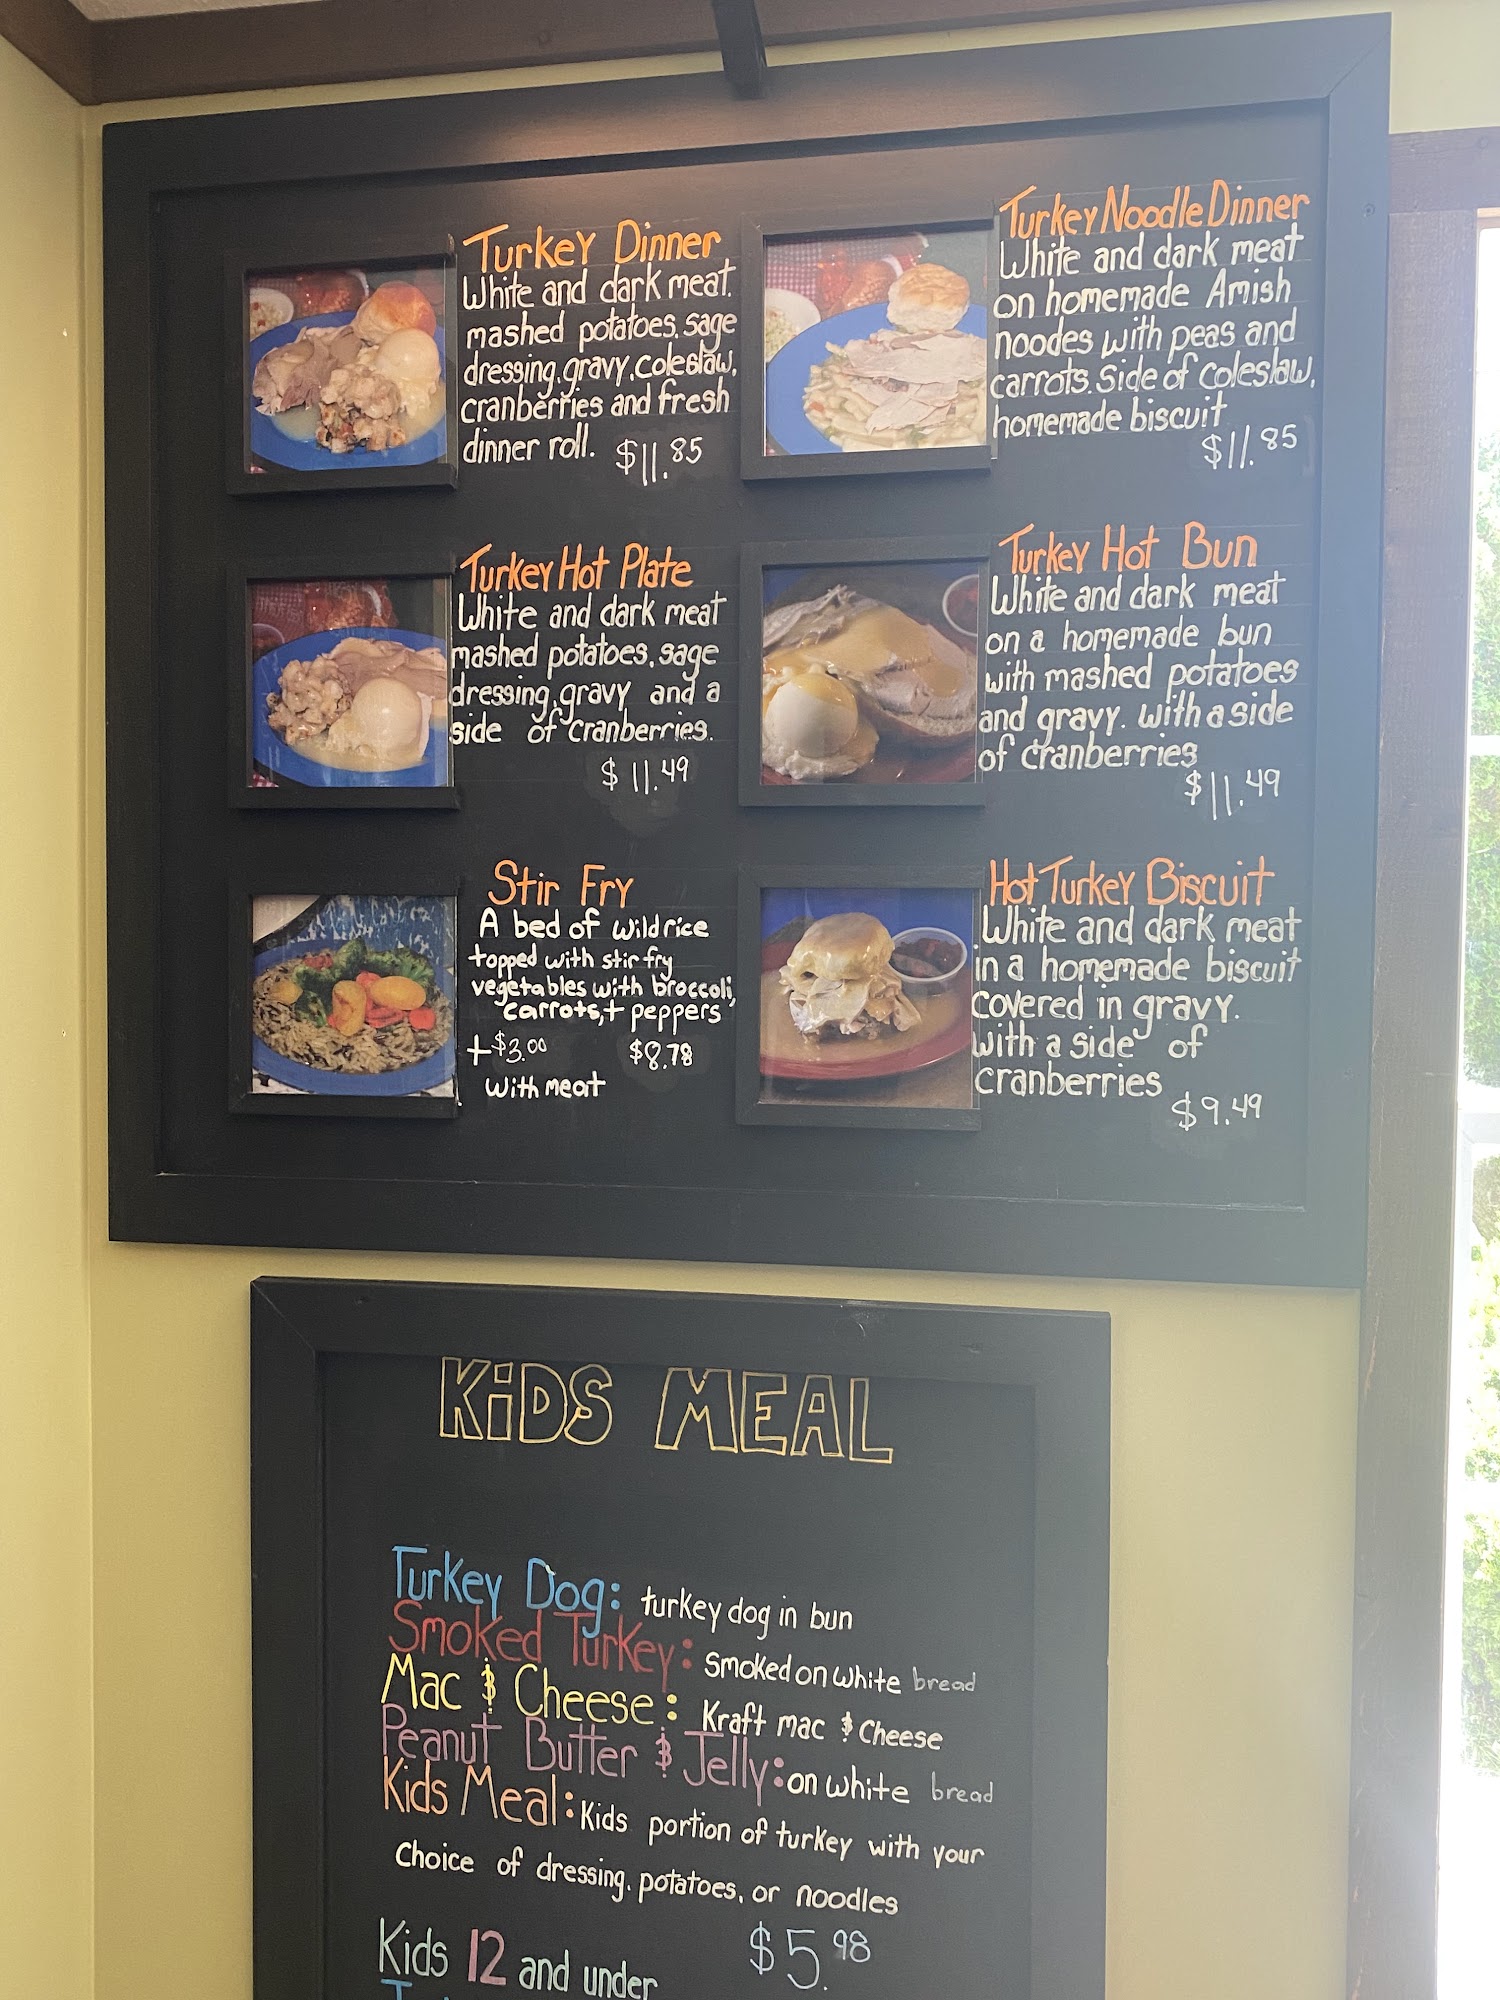 Turkey Dinner
White and dark meat.
mashed potatoes, sage
dressing, gravy, coleslaw,
cranberries and fresh
dinner roll. $11.85
Turkey Noodle Dinner
White and dark meat
on homemade Amish
noodes with peas and
carrots. Side of coleslaw,
homemade biscuit
$11.85
Turkey Hot Plate
White and dark meat
mashed potatoes, sage
dressing, gravy and a
side of cranberries.
$11.49
Turkey Hot Bun
White and dark meat
on a homemade bun
with mashed potatoes
and gravy. with a side
of cranberries
$11.49
Stir Fry
A bed of wild rice
topped with stir fry
vegetables with broccoli,
carrots, + peppers
+$3.00 $8.78
with meat
Hot Turkey Biscuit
White and dark meat
in a homemade biscuit
covered in gravy.
with a side of
cranberries
$9.49
KiDS MEAL
Turkey Dog: turkey dog in bun
Smoked Turkey: Smoked on white bread
Mac & Cheese: Kraft mac & Cheese
Peanut Butter & Jelly: on white bread
Kids Meal: Kids portion of turkey with your
choice of dressing, potatoes, or noodles
Kids 12 and under $5.98